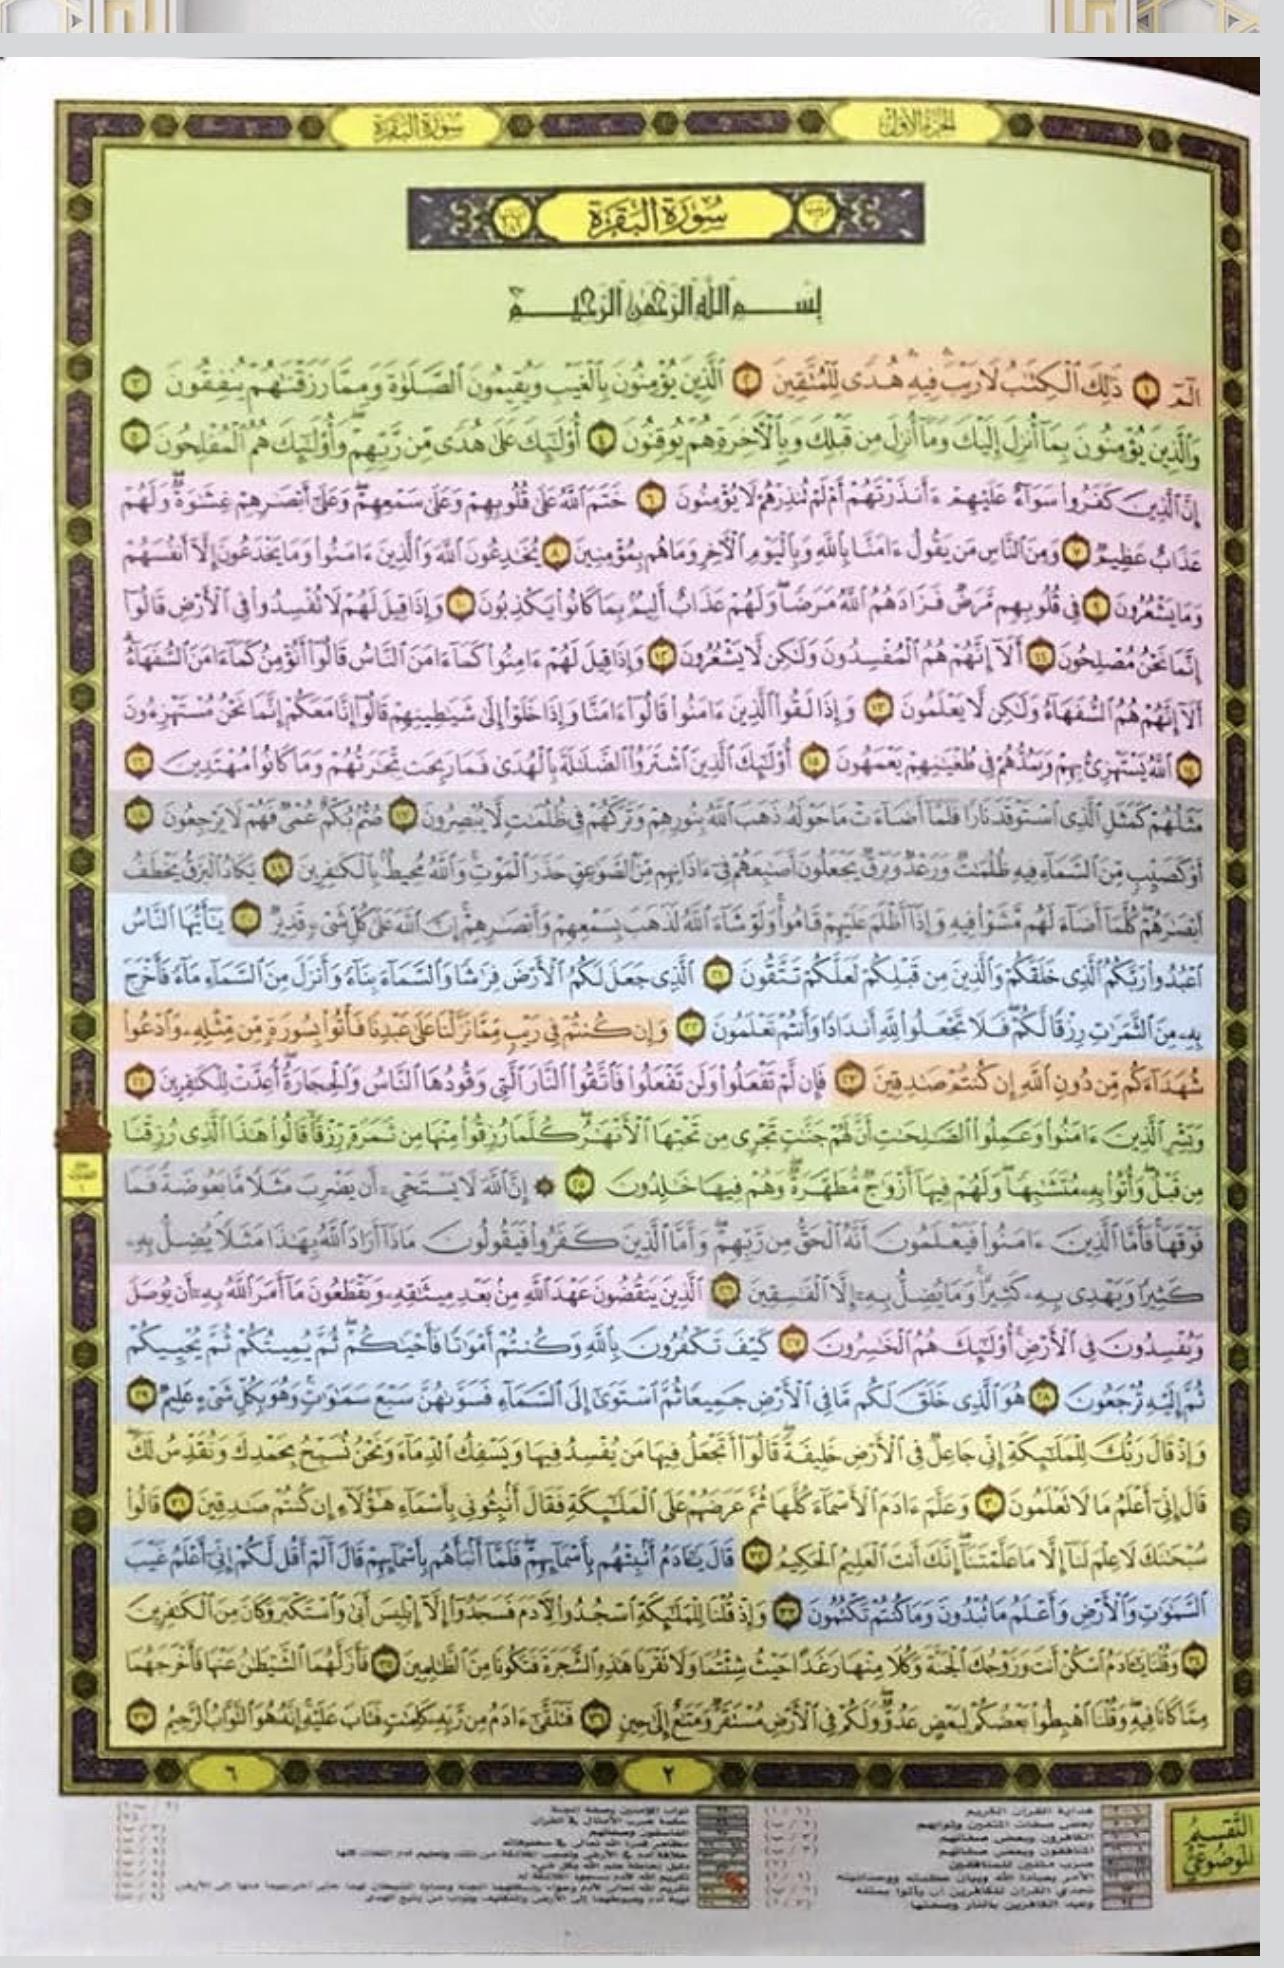 الجزء الأول
سورة البقرة
سورة البقرة
بسم الله الرحمن الرحيم
الٓمٓ ١ ذَٰلِكَ ٱلْكِتَٰبُ لَا رَيْبَ فِيهِ هُدًى لِّلْمُتَّقِينَ ٢ ٱلَّذِينَ يُؤْمِنُونَ بِٱلْغَيْبِ وَيُقِيمُونَ ٱلصَّلَوٰةَ وَمِمَّا رَزَقْنَٰهُمْ يُنفِقُونَ ٣
وَٱلَّذِينَ يُؤْمِنُونَ بِمَآ أُنزِلَ إِلَيْكَ وَمَآ أُنزِلَ مِن قَبْلِكَ وَبِٱلْءَاخِرَةِ هُمْ يُوقِنُونَ ٤ أُو۟لَٰٓئِكَ عَلَىٰ هُدًى مِّن رَّبِّهِمْ وَأُو۟لَٰٓئِكَ هُمُ ٱلْمُفْلِحُونَ ٥
إِنَّ ٱلَّذِينَ كَفَرُوا۟ سَوَآءٌ عَلَيْهِمْ ءَأَنذَرْتَهُمْ أَمْ لَمْ تُنذِرْهُمْ لَا يُؤْمِنُونَ ٦ خَتَمَ ٱللَّهُ عَلَىٰ قُلُوبِهِمْ وَعَلَىٰ سَمْعِهِمْ وَعَلَىٰٓ أَبْصَٰرِهِمْ غِشَٰوَةٌ وَلَهُمْ
عَذَابٌ عَظِيمٌ ٧ وَمِنَ ٱلنَّاسِ مَن يَقُولُ ءَامَنَّا بِٱللَّهِ وَبِٱلْيَوْمِ ٱلْءَاخِرِ وَمَا هُم بِمُؤْمِنِينَ ٨ يُخَٰدِعُونَ ٱللَّهَ وَٱلَّذِينَ ءَامَنُوا۟ وَمَا يَخْدَعُونَ إِلَّآ أَنفُسَهُمْ
وَمَا يَشْعُرُونَ ٩ فِى قُلُوبِهِم مَّرَضٌ فَزَادَهُمُ ٱللَّهُ مَرَضًا وَلَهُمْ عَذَابٌ أَلِيمٌۢ بِمَا كَانُوا۟ يَكْذِبُونَ ١٠ وَإِذَا قِيلَ لَهُمْ لَا تُفْسِدُوا۟ فِى ٱلْأَرْضِ قَالُوٓا۟
إِنَّمَا نَحْنُ مُصْلِحُونَ ١١ أَلَآ إِنَّهُمْ هُمُ ٱلْمُفْسِدُونَ وَلَٰكِن لَّا يَشْعُرُونَ ١٢ وَإِذَا قِيلَ لَهُمْ ءَامِنُوا۟ كَمَآ ءَامَنَ ٱلنَّاسُ قَالُوٓا۟ أَنُؤْمِنُ كَمَآ ءَامَنَ ٱلسُّفَهَآءُ
أَلَآ إِنَّهُمْ هُمُ ٱلسُّفَهَآءُ وَلَٰكِن لَّا يَعْلَمُونَ ١٣ وَإِذَا لَقُوا۟ ٱلَّذِينَ ءَامَنُوا۟ قَالُوٓا۟ ءَامَنَّا وَإِذَا خَلَوْا۟ إِلَىٰ شَيَٰطِينِهِمْ قَالُوٓا۟ إِنَّا مَعَكُمْ إِنَّمَا نَحْنُ مُسْتَهْزِءُونَ
١٤ ٱللَّهُ يَسْتَهْزِئُ بِهِمْ وَيَمُدُّهُمْ فِى طُغْيَٰنِهِمْ يَعْمَهُونَ ١٥ أُو۟لَٰٓئِكَ ٱلَّذِينَ ٱشْتَرَوُا۟ ٱلضَّلَٰلَةَ بِٱلْهُدَىٰ فَمَا رَبِحَت تِّجَٰرَتُهُمْ وَمَا كَانُوا۟ مُهْتَدِينَ ١٦
مَثَلُهُمْ كَمَثَلِ ٱلَّذِى ٱسْتَوْقَدَ نَارًا فَلَمَّآ أَضَآءَتْ مَا حَوْلَهُۥ ذَهَبَ ٱللَّهُ بِنُورِهِمْ وَتَرَكَهُمْ فِى ظُلُمَٰتٍ لَّا يُبْصِرُونَ ١٧ صُمٌّۢ بُكْمٌ عُمْىٌ فَهُمْ لَا يَرْجِعُونَ ١٨
أَوْ كَصَيِّبٍ مِّنَ ٱلسَّمَآءِ فِيهِ ظُلُمَٰتٌ وَرَعْدٌ وَبَرْقٌ يَجْعَلُونَ أَصَٰبِعَهُمْ فِىٓ ءَاذَانِهِم مِّنَ ٱلصَّوَٰعِقِ حَذَرَ ٱلْمَوْتِ وَٱللَّهُ مُحِيطٌۢ بِٱلْكَٰفِرِينَ ١٩ يَكَادُ ٱلْبَرْقُ يَخْطَفُ
أَبْصَٰرَهُمْ كُلَّمَآ أَضَآءَ لَهُم مَّشَوْا۟ فِيهِ وَإِذَآ أَظْلَمَ عَلَيْهِمْ قَامُوا۟ وَلَوْ شَآءَ ٱللَّهُ لَذَهَبَ بِسَمْعِهِمْ وَأَبْصَٰرِهِمْ إِنَّ ٱللَّهَ عَلَىٰ كُلِّ شَىْءٍ قَدِيرٌ ٢٠ يَٰٓأَيُّهَا ٱلنَّاسُ
ٱعْبُدُوا۟ رَبَّكُمُ ٱلَّذِى خَلَقَكُمْ وَٱلَّذِينَ مِن قَبْلِكُمْ لَعَلَّكُمْ تَتَّقُونَ ٢١ ٱلَّذِى جَعَلَ لَكُمُ ٱلْأَرْضَ فِرَٰشًا وَٱلسَّمَآءَ بِنَآءً وَأَنزَلَ مِنَ ٱلسَّمَآءِ مَآءً فَأَخْرَجَ
بِهِۦ مِنَ ٱلثَّمَرَٰتِ رِزْقًا لَّكُمْ فَلَا تَجْعَلُوا۟ لِلَّهِ أَندَادًا وَأَنتُمْ تَعْلَمُونَ ٢٢ وَإِن كُنتُمْ فِى رَيْبٍ مِّمَّا نَزَّلْنَا عَلَىٰ عَبْدِنَا فَأْتُوا۟ بِسُورَةٍ مِّن مِّثْلِهِۦ وَٱدْعُوا۟
شُهَدَآءَكُم مِّن دُونِ ٱللَّهِ إِن كُنتُمْ صَٰدِقِينَ ٢٣ فَإِن لَّمْ تَفْعَلُوا۟ وَلَن تَفْعَلُوا۟ فَٱتَّقُوا۟ ٱلنَّارَ ٱلَّتِى وَقُودُهَا ٱلنَّاسُ وَٱلْحِجَارَةُ أُعِدَّتْ لِلْكَٰفِرِينَ ٢٤
وَبَشِّرِ ٱلَّذِينَ ءَامَنُوا۟ وَعَمِلُوا۟ ٱلصَّٰلِحَٰتِ أَنَّ لَهُمْ جَنَّٰتٍ تَجْرِى مِن تَحْتِهَا ٱلْأَنْهَٰرُ كُلَّمَا رُزِقُوا۟ مِنْهَا مِن ثَمَرَةٍ رِّزْقًا قَالُوا۟ هَٰذَا ٱلَّذِى رُزِقْنَا
مِن قَبْلُ وَأُتُوا۟ بِهِۦ مُتَشَٰبِهًا وَلَهُمْ فِيهَآ أَزْوَٰجٌ مُّطَهَّرَةٌ وَهُمْ فِيهَا خَٰلِدُونَ ٢٥ ۞ إِنَّ ٱللَّهَ لَا يَسْتَحْىِۦٓ أَن يَضْرِبَ مَثَلًا مَّا بَعُوضَةً فَمَا
فَوْقَهَا فَأَمَّا ٱلَّذِينَ ءَامَنُوا۟ فَيَعْلَمُونَ أَنَّهُ ٱلْحَقُّ مِن رَّبِّهِمْ وَأَمَّا ٱلَّذِينَ كَفَرُوا۟ فَيَقُولُونَ مَاذَآ أَرَادَ ٱللَّهُ بِهَٰذَا مَثَلًا يُضِلُّ بِهِۦ
كَثِيرًا وَيَهْدِى بِهِۦ كَثِيرًا وَمَا يُضِلُّ بِهِۦٓ إِلَّا ٱلْفَٰسِقِينَ ٢٦ ٱلَّذِينَ يَنقُضُونَ عَهْدَ ٱللَّهِ مِنۢ بَعْدِ مِيثَٰقِهِۦ وَيَقْطَعُونَ مَآ أَمَرَ ٱللَّهُ بِهِۦٓ أَن يُوصَلَ
وَيُفْسِدُونَ فِى ٱلْأَرْضِ أُو۟لَٰٓئِكَ هُمُ ٱلْخَٰسِرُونَ ٢٧ كَيْفَ تَكْفُرُونَ بِٱللَّهِ وَكُنتُمْ أَمْوَٰتًا فَأَحْيَٰكُمْ ثُمَّ يُمِيتُكُمْ ثُمَّ يُحْيِيكُمْ
ثُمَّ إِلَيْهِ تُرْجَعُونَ ٢٨ هُوَ ٱلَّذِى خَلَقَ لَكُم مَّا فِى ٱلْأَرْضِ جَمِيعًا ثُمَّ ٱسْتَوَىٰٓ إِلَى ٱلسَّمَآءِ فَسَوَّىٰهُنَّ سَبْعَ سَمَٰوَٰتٍ وَهُوَ بِكُلِّ شَىْءٍ عَلِيمٌ ٢٩
وَإِذْ قَالَ رَبُّكَ لِلْمَلَٰٓئِكَةِ إِنِّى جَاعِلٌ فِى ٱلْأَرْضِ خَلِيفَةً قَالُوٓا۟ أَتَجْعَلُ فِيهَا مَن يُفْسِدُ فِيهَا وَيَسْفِكُ ٱلدِّمَآءَ وَنَحْنُ نُسَبِّحُ بِحَمْدِكَ وَنُقَدِّسُ لَكَ
قَالَ إِنِّىٓ أَعْلَمُ مَا لَا تَعْلَمُونَ ٣٠ وَعَلَّمَ ءَادَمَ ٱلْأَسْمَآءَ كُلَّهَا ثُمَّ عَرَضَهُمْ عَلَى ٱلْمَلَٰٓئِكَةِ فَقَالَ أَنۢبِـُٔونِى بِأَسْمَآءِ هَٰٓؤُلَآءِ إِن كُنتُمْ صَٰدِقِينَ ٣١ قَالُوا۟
سُبْحَٰنَكَ لَا عِلْمَ لَنَآ إِلَّا مَا عَلَّمْتَنَآ إِنَّكَ أَنتَ ٱلْعَلِيمُ ٱلْحَكِيمُ ٣٢ قَالَ يَٰٓـَٔادَمُ أَنۢبِئْهُم بِأَسْمَآئِهِمْ فَلَمَّآ أَنۢبَأَهُم بِأَسْمَآئِهِمْ قَالَ أَلَمْ أَقُل لَّكُمْ إِنِّىٓ أَعْلَمُ غَيْبَ
ٱلسَّمَٰوَٰتِ وَٱلْأَرْضِ وَأَعْلَمُ مَا تُبْدُونَ وَمَا كُنتُمْ تَكْتُمُونَ ٣٣ وَإِذْ قُلْنَا لِلْمَلَٰٓئِكَةِ ٱسْجُدُوا۟ لِءَادَمَ فَسَجَدُوٓا۟ إِلَّآ إِبْلِيسَ أَبَىٰ وَٱسْتَكْبَرَ وَكَانَ مِنَ ٱلْكَٰفِرِينَ
٣٤ وَقُلْنَا يَٰٓـَٔادَمُ ٱسْكُنْ أَنتَ وَزَوْجُكَ ٱلْجَنَّةَ وَكُلَا مِنْهَا رَغَدًا حَيْثُ شِئْتُمَا وَلَا تَقْرَبَا هَٰذِهِ ٱلشَّجَرَةَ فَتَكُونَا مِنَ ٱلظَّٰلِمِينَ ٣٥ فَأَزَلَّهُمَا ٱلشَّيْطَٰنُ عَنْهَا فَأَخْرَجَهُمَا
مِمَّا كَانَا فِيهِ وَقُلْنَا ٱهْبِطُوا۟ بَعْضُكُمْ لِبَعْضٍ عَدُوٌّ وَلَكُمْ فِى ٱلْأَرْضِ مُسْتَقَرٌّ وَمَتَٰعٌ إِلَىٰ حِينٍ ٣٦ فَتَلَقَّىٰٓ ءَادَمُ مِن رَّبِّهِۦ كَلِمَٰتٍ فَتَابَ عَلَيْهِ إِنَّهُۥ هُوَ ٱلتَّوَّابُ ٱلرَّحِيمُ ٣٧
٢
٦
التقسيم
الموضوعي
هداية القرآن الكريم
بعض صفات المتقين وثوابهم
الكافرون وبعض صفاتهم
المنافقون وبعض صفاتهم
ضرب مثلين للمنافقين
الأمر بعبادة الله وبيان عظمته ووحدانيته
تحدي القرآن للكافرين أن يأتوا بمثله
وعيد الكافرين بالنار وصفتها
ثواب المؤمنين وصفة الجنة
حكمة ضرب الأمثال في القرآن